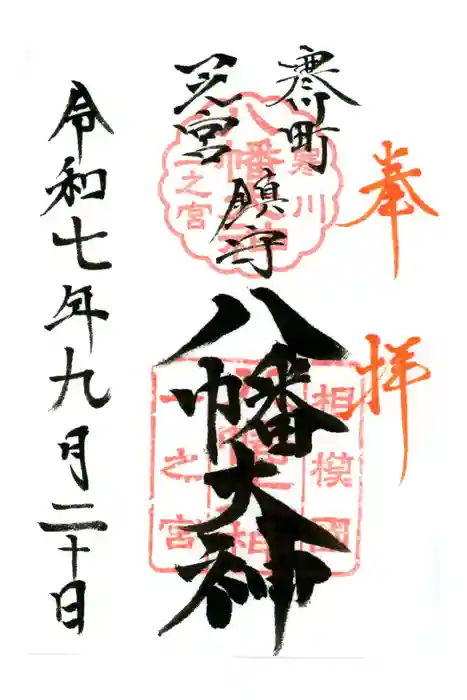 奉拝
寒川町
一之宮
鎮守
八幡大神
令和七年九月二十日
寒川
八幡大神
一之宮
相模國
一之宮